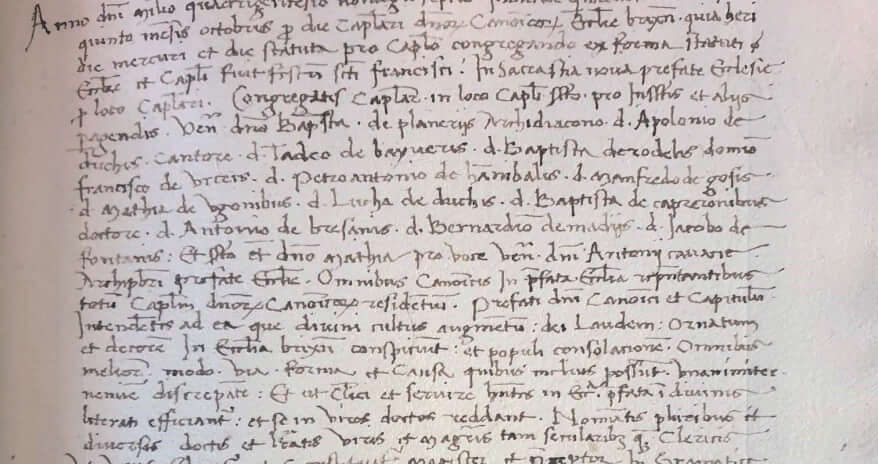 Anno dnī Milio quadringentesio nonag
quinto mēsis octobris ꝓ die Capłari dnōꝝ Canoicoꝝ Ecclie brixīn. quia heri
die mercuri et die statuta pro Capłо congregando ex forma statuti
Ecclie et Capłi fuit festū scti francisci. In sacrastia noua prefate Ecclesie
ꝓ loco Capłari. Congregatis Capłar. in loco Capłi pro et alijs
Venˡ. dnō Baptista. de planerijs Archidiacono. d. Apolonio de
duchis. Cantore. d. Tadeo de bayueris. d. Baptista de rodelis domīo
francisco de vrceis. d. Petro antonio de hānibalis. d. Manfredo de gosis
d. Mathia de vgonibus. d. Lucha de duchis. d. Baptista de capreonibus
doctore. d. Antonio de bresanis. d. Bernardīo de madijs. d. Jacobo de
fontanis: Et et dnō Mathia pro voce Venˡ. dnī Antonij
Archipbrī prefate Ecclie. Omnibus Canoicis In pfata Ecclia reputantibus
totū Caplm dnōꝝ Canoicoꝝ residētiū. Prefati dnī Canoici et Capitulū
Intendētes ad ea que diuini cultus augmētū: dei Laudem: Ornatum
et decorē In Ecclia brixīn conspiciūt: et populi consolatione. Omnibus
meliorˡ. modo. via. forma et Causa quibus melius possūt. Vnanimiter
nemīe discrepāte: Et ut Clici et seruire hūtes in Ecˡ. pfata ī diuinis
literati efficiant: et se in viros doctos reddant. Nomīatis pluribus et
diuersis doctis et Lrātis viris et magris tam secularibꝫ qꝫ Clericis
magister et In Gramatic